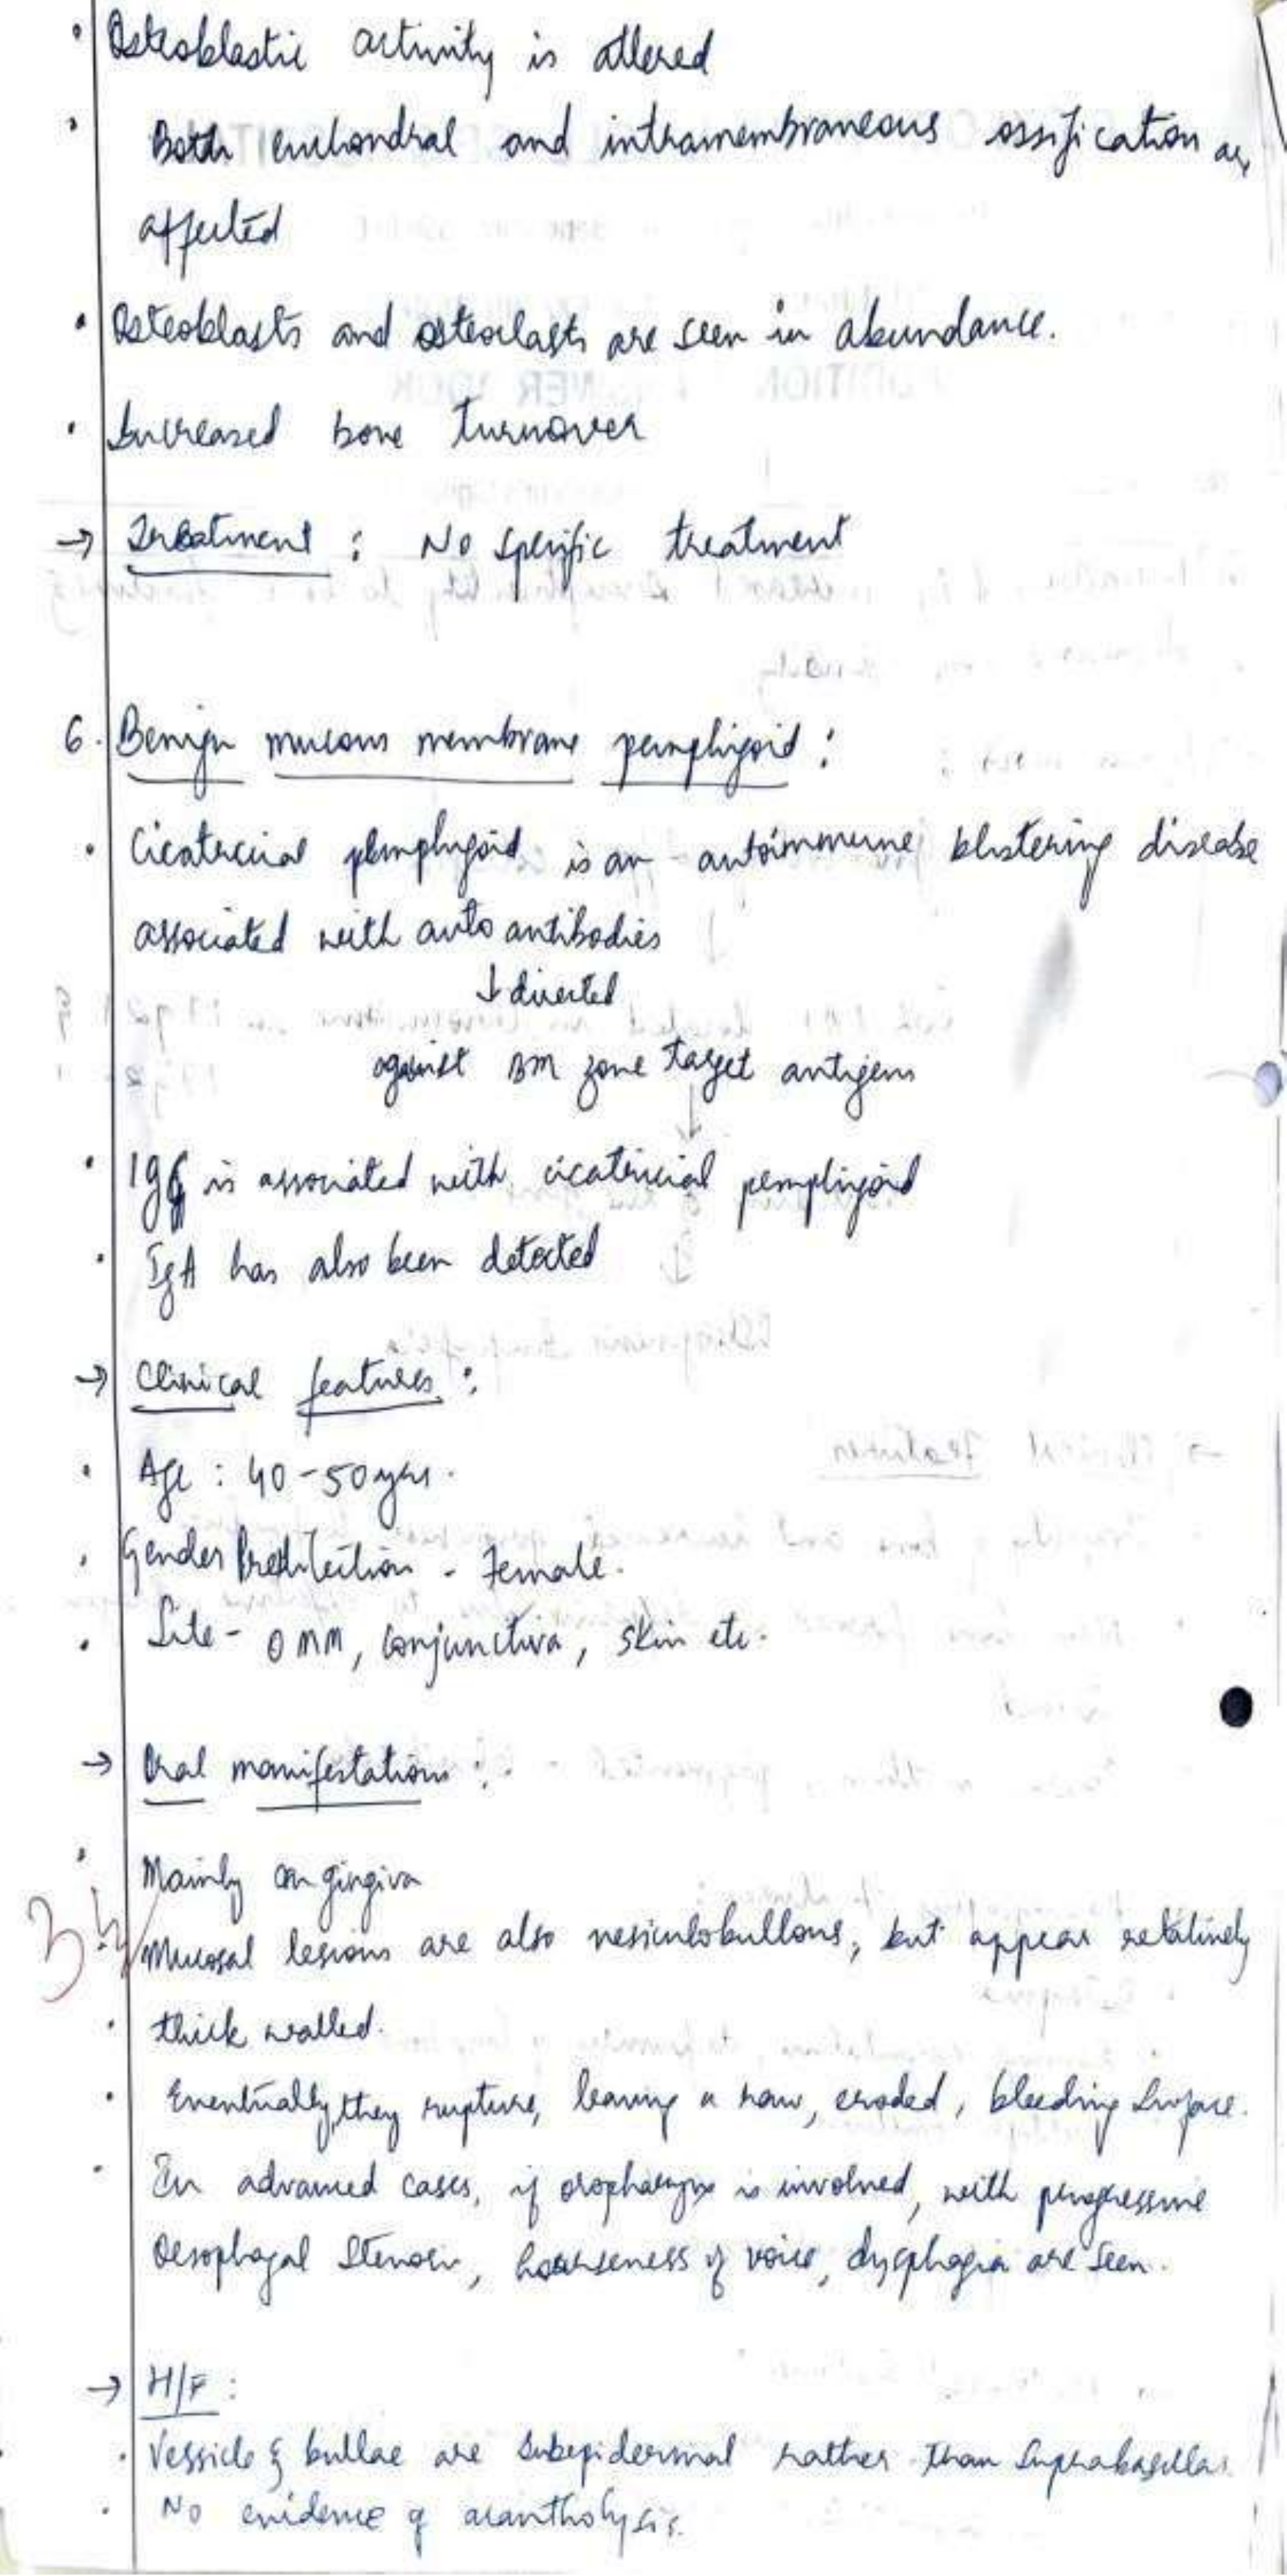 • Osteoblastic activity is altered
• Both enchondral and intramembraneous ossification are
affected
• Osteoblasts and osteoclasts are seen in abundance.
• Increased bone turnover
→ Treatment : No specific treatment
6. Benign mucous membrane pemphigoid :
• Cicatricial pemphigoid is an autoimmune blistering disease
associated with auto antibodies
↓ directed
against BM zone target antigens
↓
• IgG is associated with cicatricial pemphigoid
• IgA has also been detected
→ Clinical features :
• Age : 40-50 yrs.
• Gender Predilection - Female.
• Site - OMM, conjunctiva, skin etc.
→ Oral manifestations :
• Mainly on gingiva
3½
Mucosal lesions are also vesiculobullous, but appear relatively
• thick walled.
• Eventually, they rupture, leaving a raw, eroded, bleeding surface.
• In advanced cases, if oropharynx is involved, with progressive
Oesophagal stenosis, hoarseness of voice, dysphagia are seen.
→ H/F :
• Vessicle & bullae are subepidermal rather than suprabasillar.
• No evidence of acantholysis.